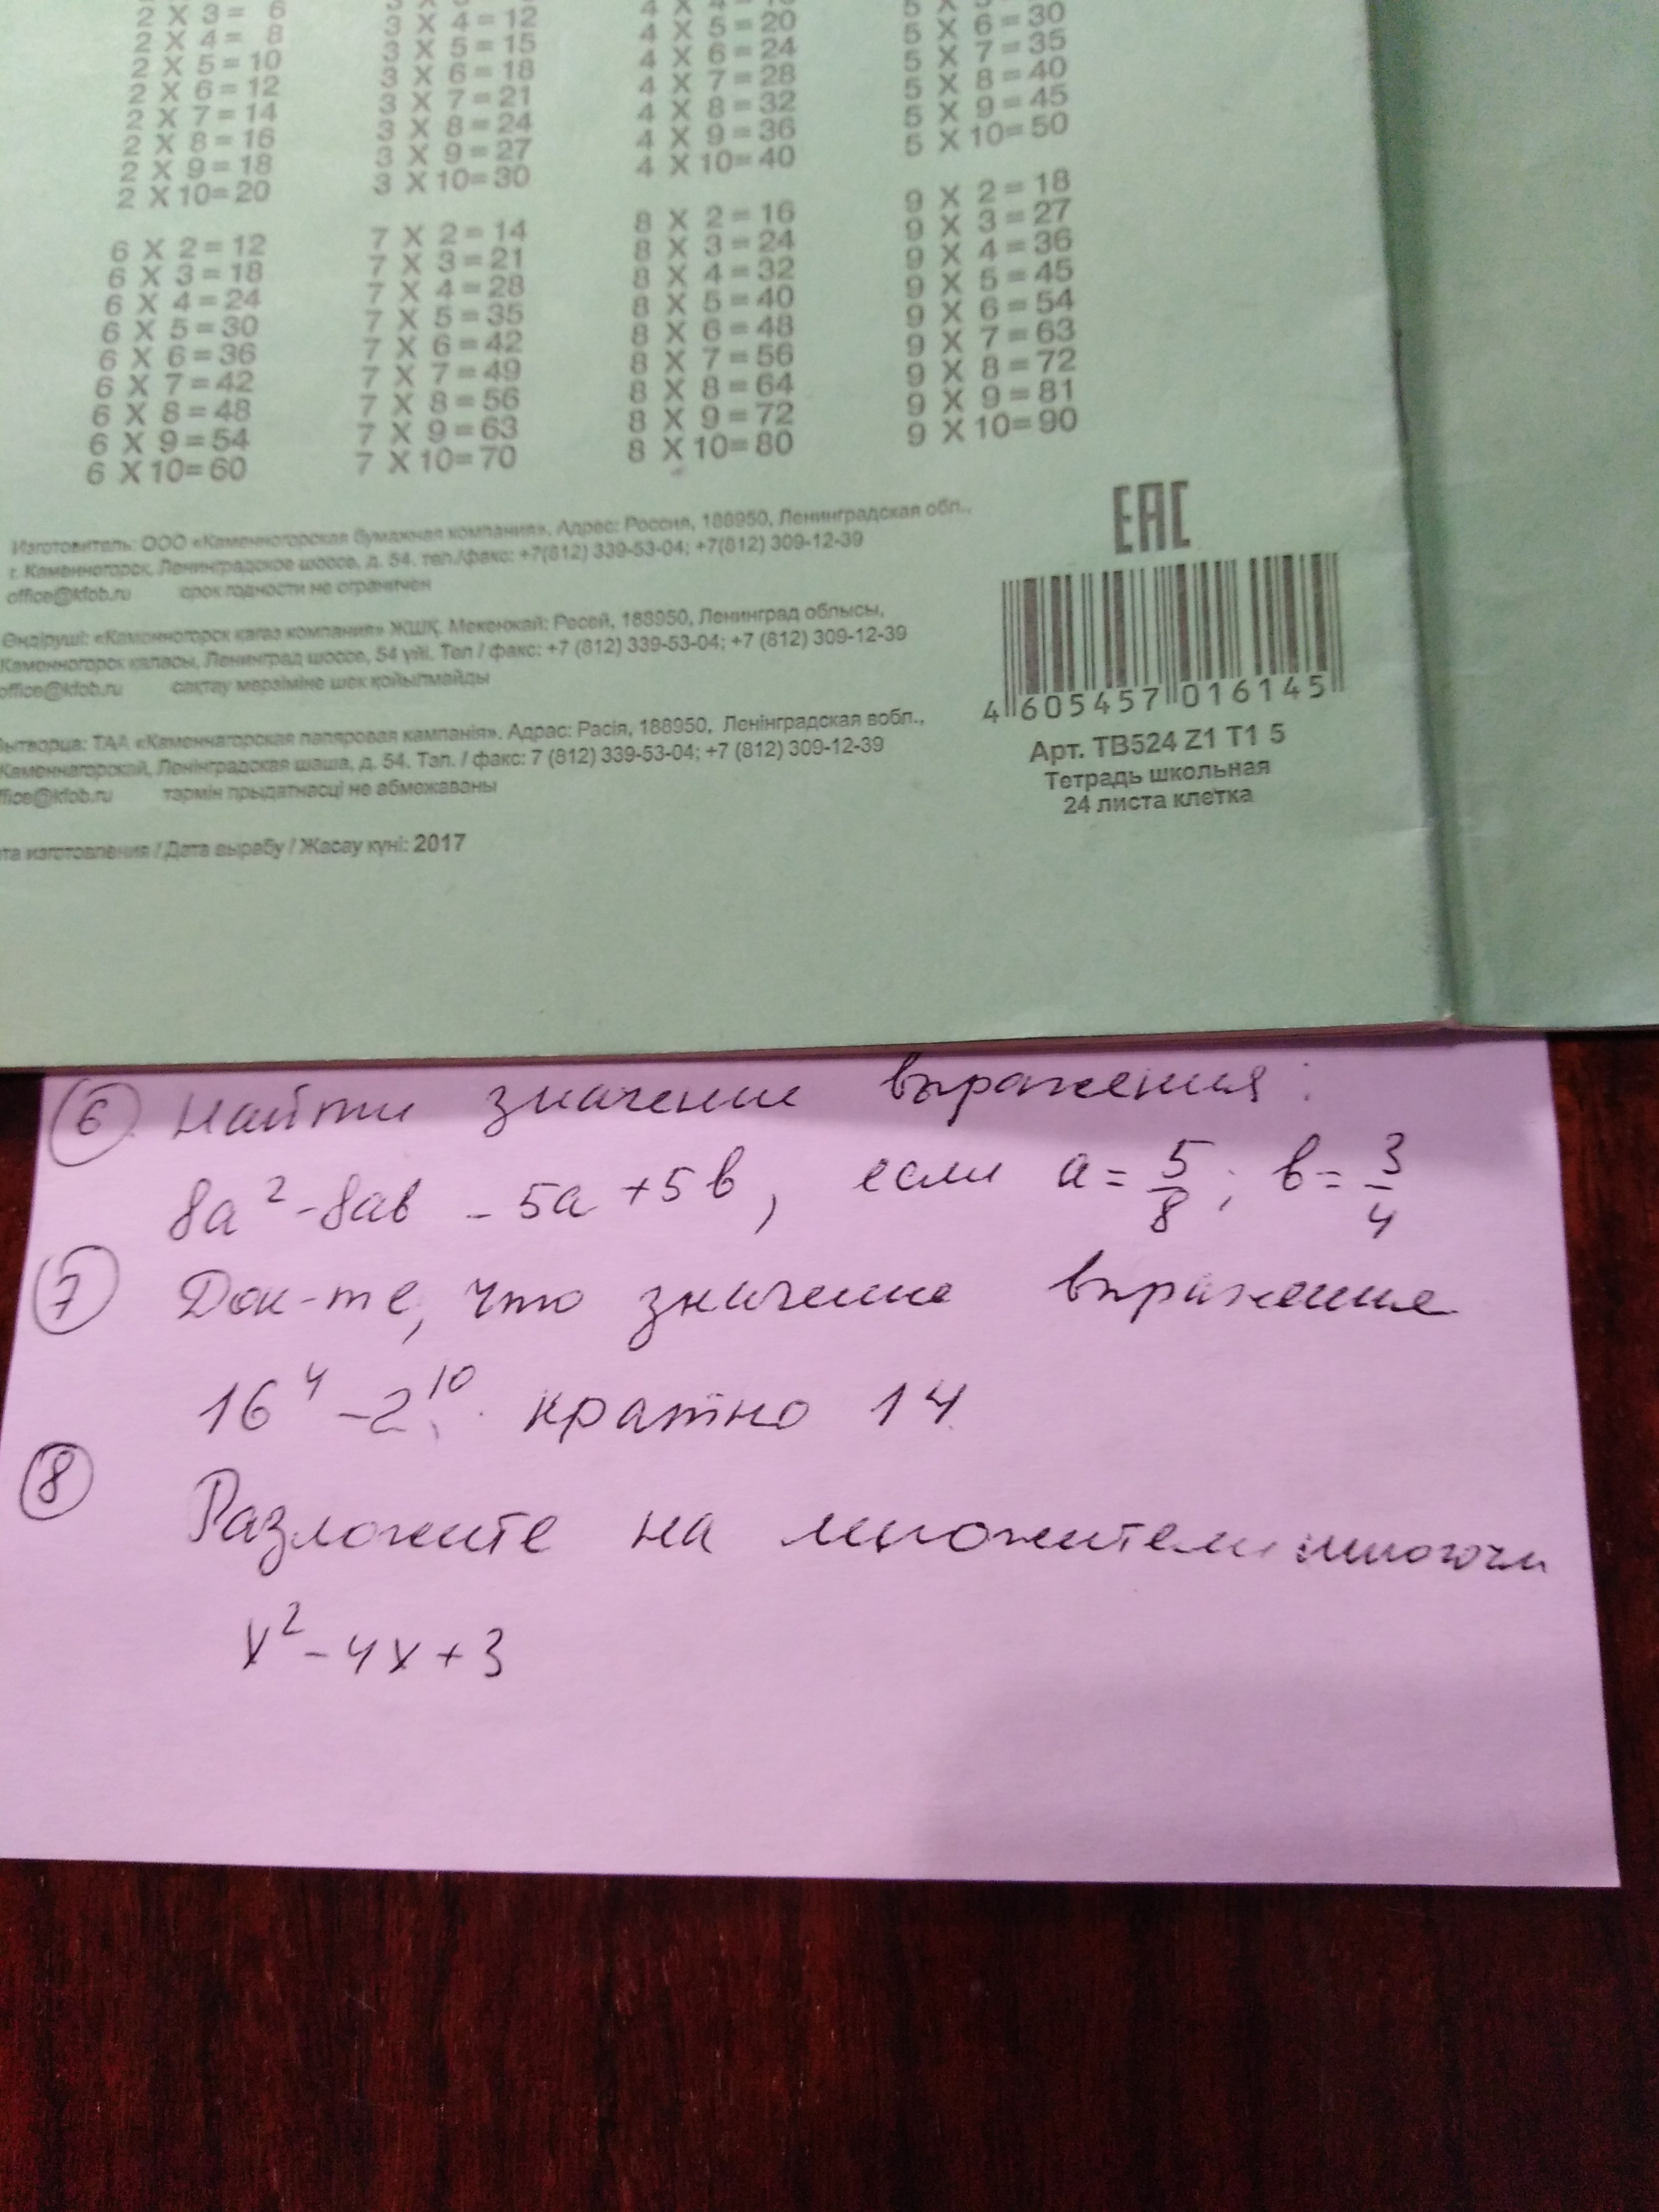 2 X 3 = 6
2 X 4 = 8
2 X 5 = 10
2 X 6 = 12
2 X 7 = 14
2 X 8 = 16
2 X 9 = 18
2 X 10 = 20
3 X 4 = 12
3 X 5 = 15
3 X 6 = 18
3 X 7 = 21
3 X 8 = 24
3 X 9 = 27
3 X 10 = 30
4 X 5 = 20
4 X 6 = 24
4 X 7 = 28
4 X 8 = 32
4 X 9 = 36
4 X 10 = 40
5 X 6 = 30
5 X 7 = 35
5 X 8 = 40
5 X 9 = 45
5 X 10 = 50
6 X 2 = 12
6 X 3 = 18
6 X 4 = 24
6 X 5 = 30
6 X 6 = 36
6 X 7 = 42
6 X 8 = 48
6 X 9 = 54
6 X 10 = 60
7 X 2 = 14
7 X 3 = 21
7 X 4 = 28
7 X 5 = 35
7 X 6 = 42
7 X 7 = 49
7 X 8 = 56
7 X 9 = 63
7 X 10 = 70
8 X 2 = 16
8 X 3 = 24
8 X 4 = 32
8 X 5 = 40
8 X 6 = 48
8 X 7 = 56
8 X 8 = 64
8 X 9 = 72
8 X 10 = 80
9 X 2 = 18
9 X 3 = 27
9 X 4 = 36
9 X 5 = 45
9 X 6 = 54
9 X 7 = 63
9 X 8 = 72
9 X 9 = 81
9 X 10 = 90
Изготовитель: ООО «Каменногорская бумажная компания». Адрес: Россия, 188950, Ленинградская обл.,
г. Каменногорск, Ленинградское шоссе, д. 54. тел./факс: +7(812) 339-53-04; +7(812) 309-12-39
office@kfob.ru срок годности не ограничен
Өндіруші: «Каменногорск қағаз компания» ЖШҚ. Мекенжай: Ресей, 188950, Ленинград облысы,
Каменногорск қаласы, Ленинград шоссе, 54 үйі. Тел / факс: +7 (812) 339-53-04; +7 (812) 309-12-39
office@kfob.ru сақтау мерзіміне шек қойылмайды
Вытворца: ТАА «Каменнагорская папяровая кампанія». Адрас: Расія, 188950, Ленінградская вобл.,
Каменнагорскай, Ленінградская шаша, д. 54. Тэл. / факс: 7 (812) 339-53-04; +7 (812) 309-12-39
ffice@kfob.ru тэрмін прыдатнасці не абмежаваны
та изготовления / Дата вырабу / Жасау күні: 2017
EAC
4 605457 016145
Арт. ТВ524 Z1 T1 5
Тетрадь школьная
24 листа клетка
6 Найти значение выражения:
8a² - 8ab - 5a + 5b, если a = 5/8; b = 3/4
7 Док-те, что значение выражения
16⁴ - 2¹⁰ кратно 14
8 Разложите на множители многочл
x² - 4x + 3